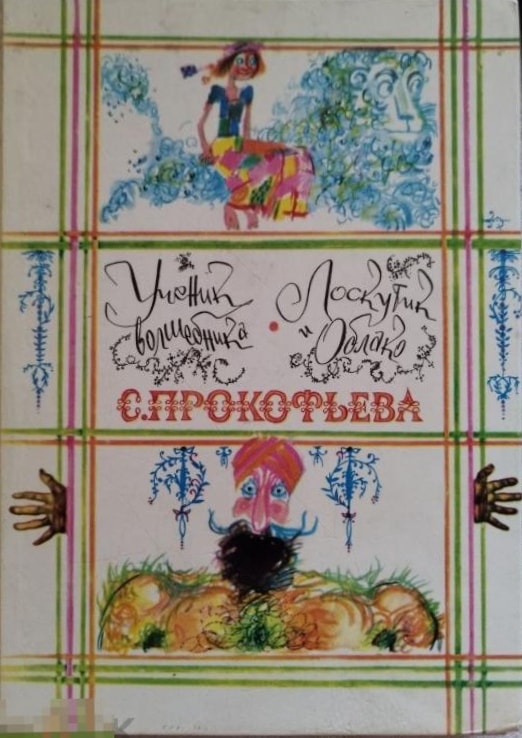 Ученик
волшебника
•
Лоскутик
и Облако
С.ПРОКОФЬЕВА